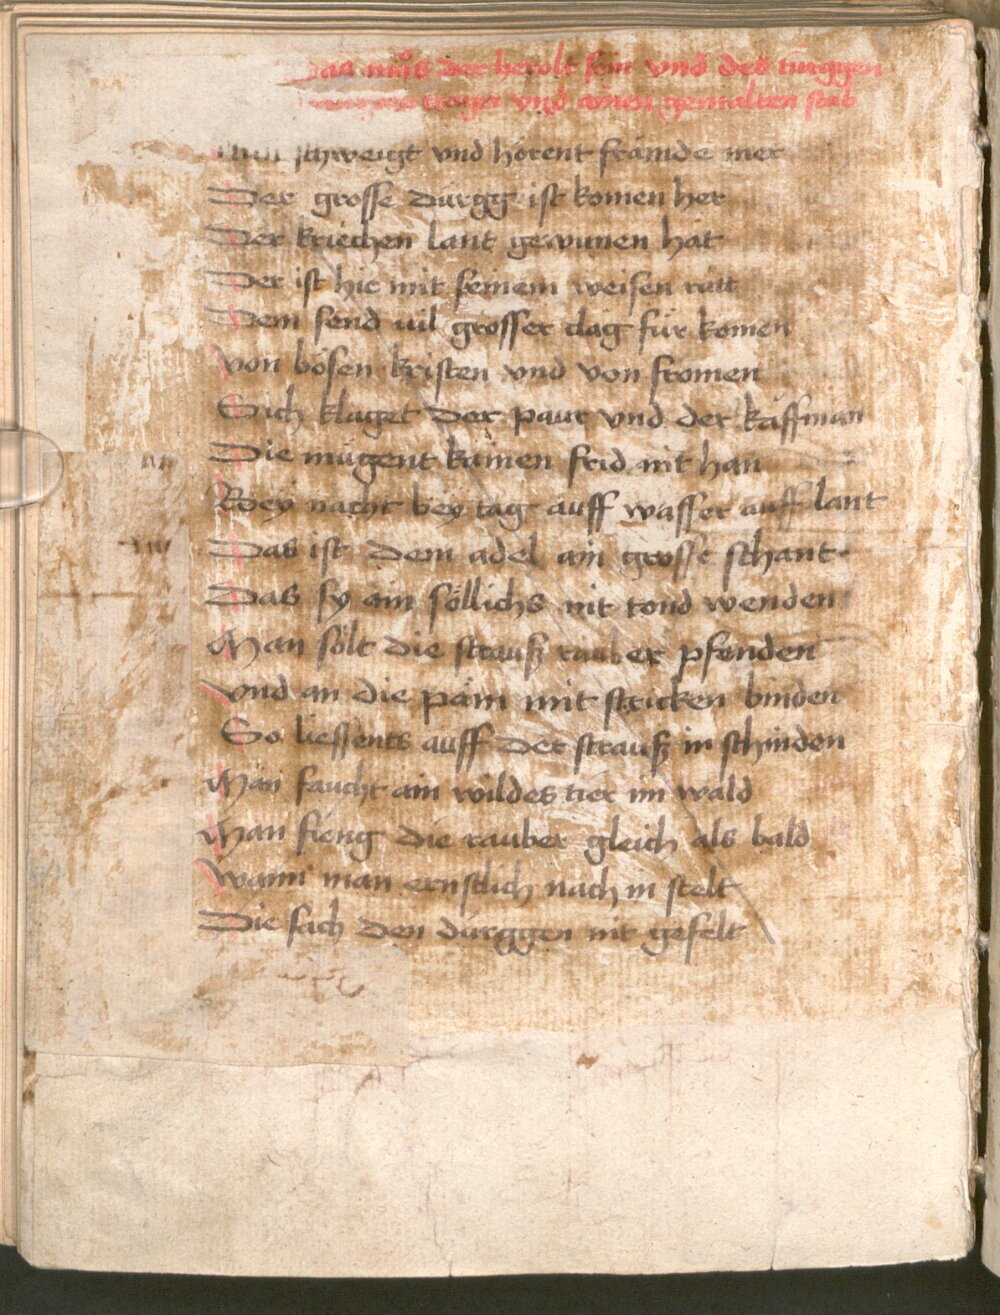 Das můs der herolt sein vnd des türggen
trager vnd ainen gemalten stab
Nun schweigt vnd hörent främde mer
Der grosse dürgg ist komen her
Der kriechen lant gewunen hat
Der ist hie mit seinem weisen ratt
Dem send uil grosser clag für komen
von bösen kristen vnd von fromen
Sich klaget der paur vnd der kaffman
Die mügent kainen frid nit han
Bey nacht bey tag auff wasser auff lant
Das ist dem adel ain grosse schant
Das sy ain söllichs nit tond wenden
Man sölt die strauß rauber pfenden
vnd an die päm mit stricken binden
So liessents auff der strauß in schinden
Man faucht ain wildes tier im wald
Man fieng die rauber gleich als bald
wann man ernstlich nach in stelt
Die sach den dürggen nit gefelt